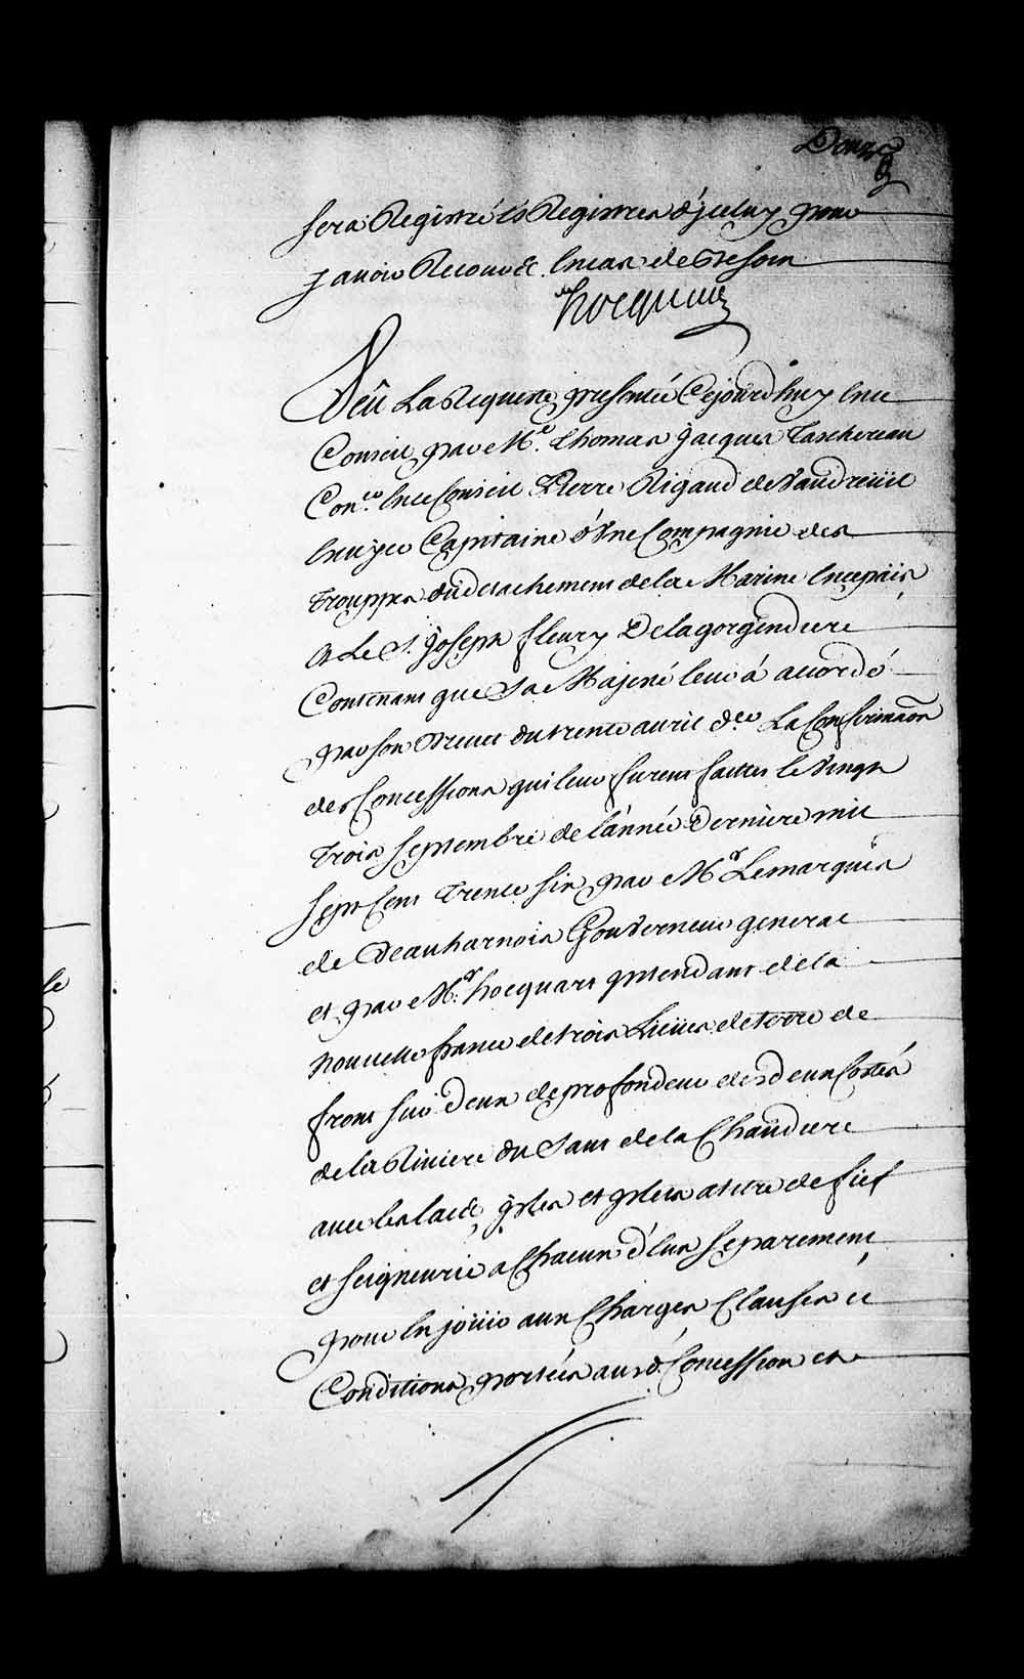 Douze
Sera Registré és Registres d'jceluy pour
y avoir Recours Encas de Besoin
hocquart
Veû La Requeste presentée Cejourd'huy Ence
Conseil par Me. Thomas Jacques Taschereau
Coner. Ence Conseil Pierre Rigaud de Vaudreüil
Ecuyer Capitaine d'Une Compagnie des
Trouppes du detachement de la Marine Encepaïs
Et Le S. Joseph fleury Delagorgendiere
Contenant que Sa Majesté leur á accordé
par son Brevet du trente avril der. La Confirmaõn
des Concessions qui leur furent faittes le Vingt
Trois septembre de l'année Derniere mil
sept Cent Trente Six par Mr. Lemarquis
de Beauharnois Gouverneur general
et par Mr. hocquart jntendant dela
nouvelle france de trois Lieües de terre de
front sur deux de profondeur des deux Costés
de la Riviere du Saut de la Chaudiere
avec les lacs, jsles et jslets a titre de fief
et seigneurie a Chacun d'Eux Separement
pour En joüir aux Charges Clauses et
Conditions portées aus d. Concession et
le